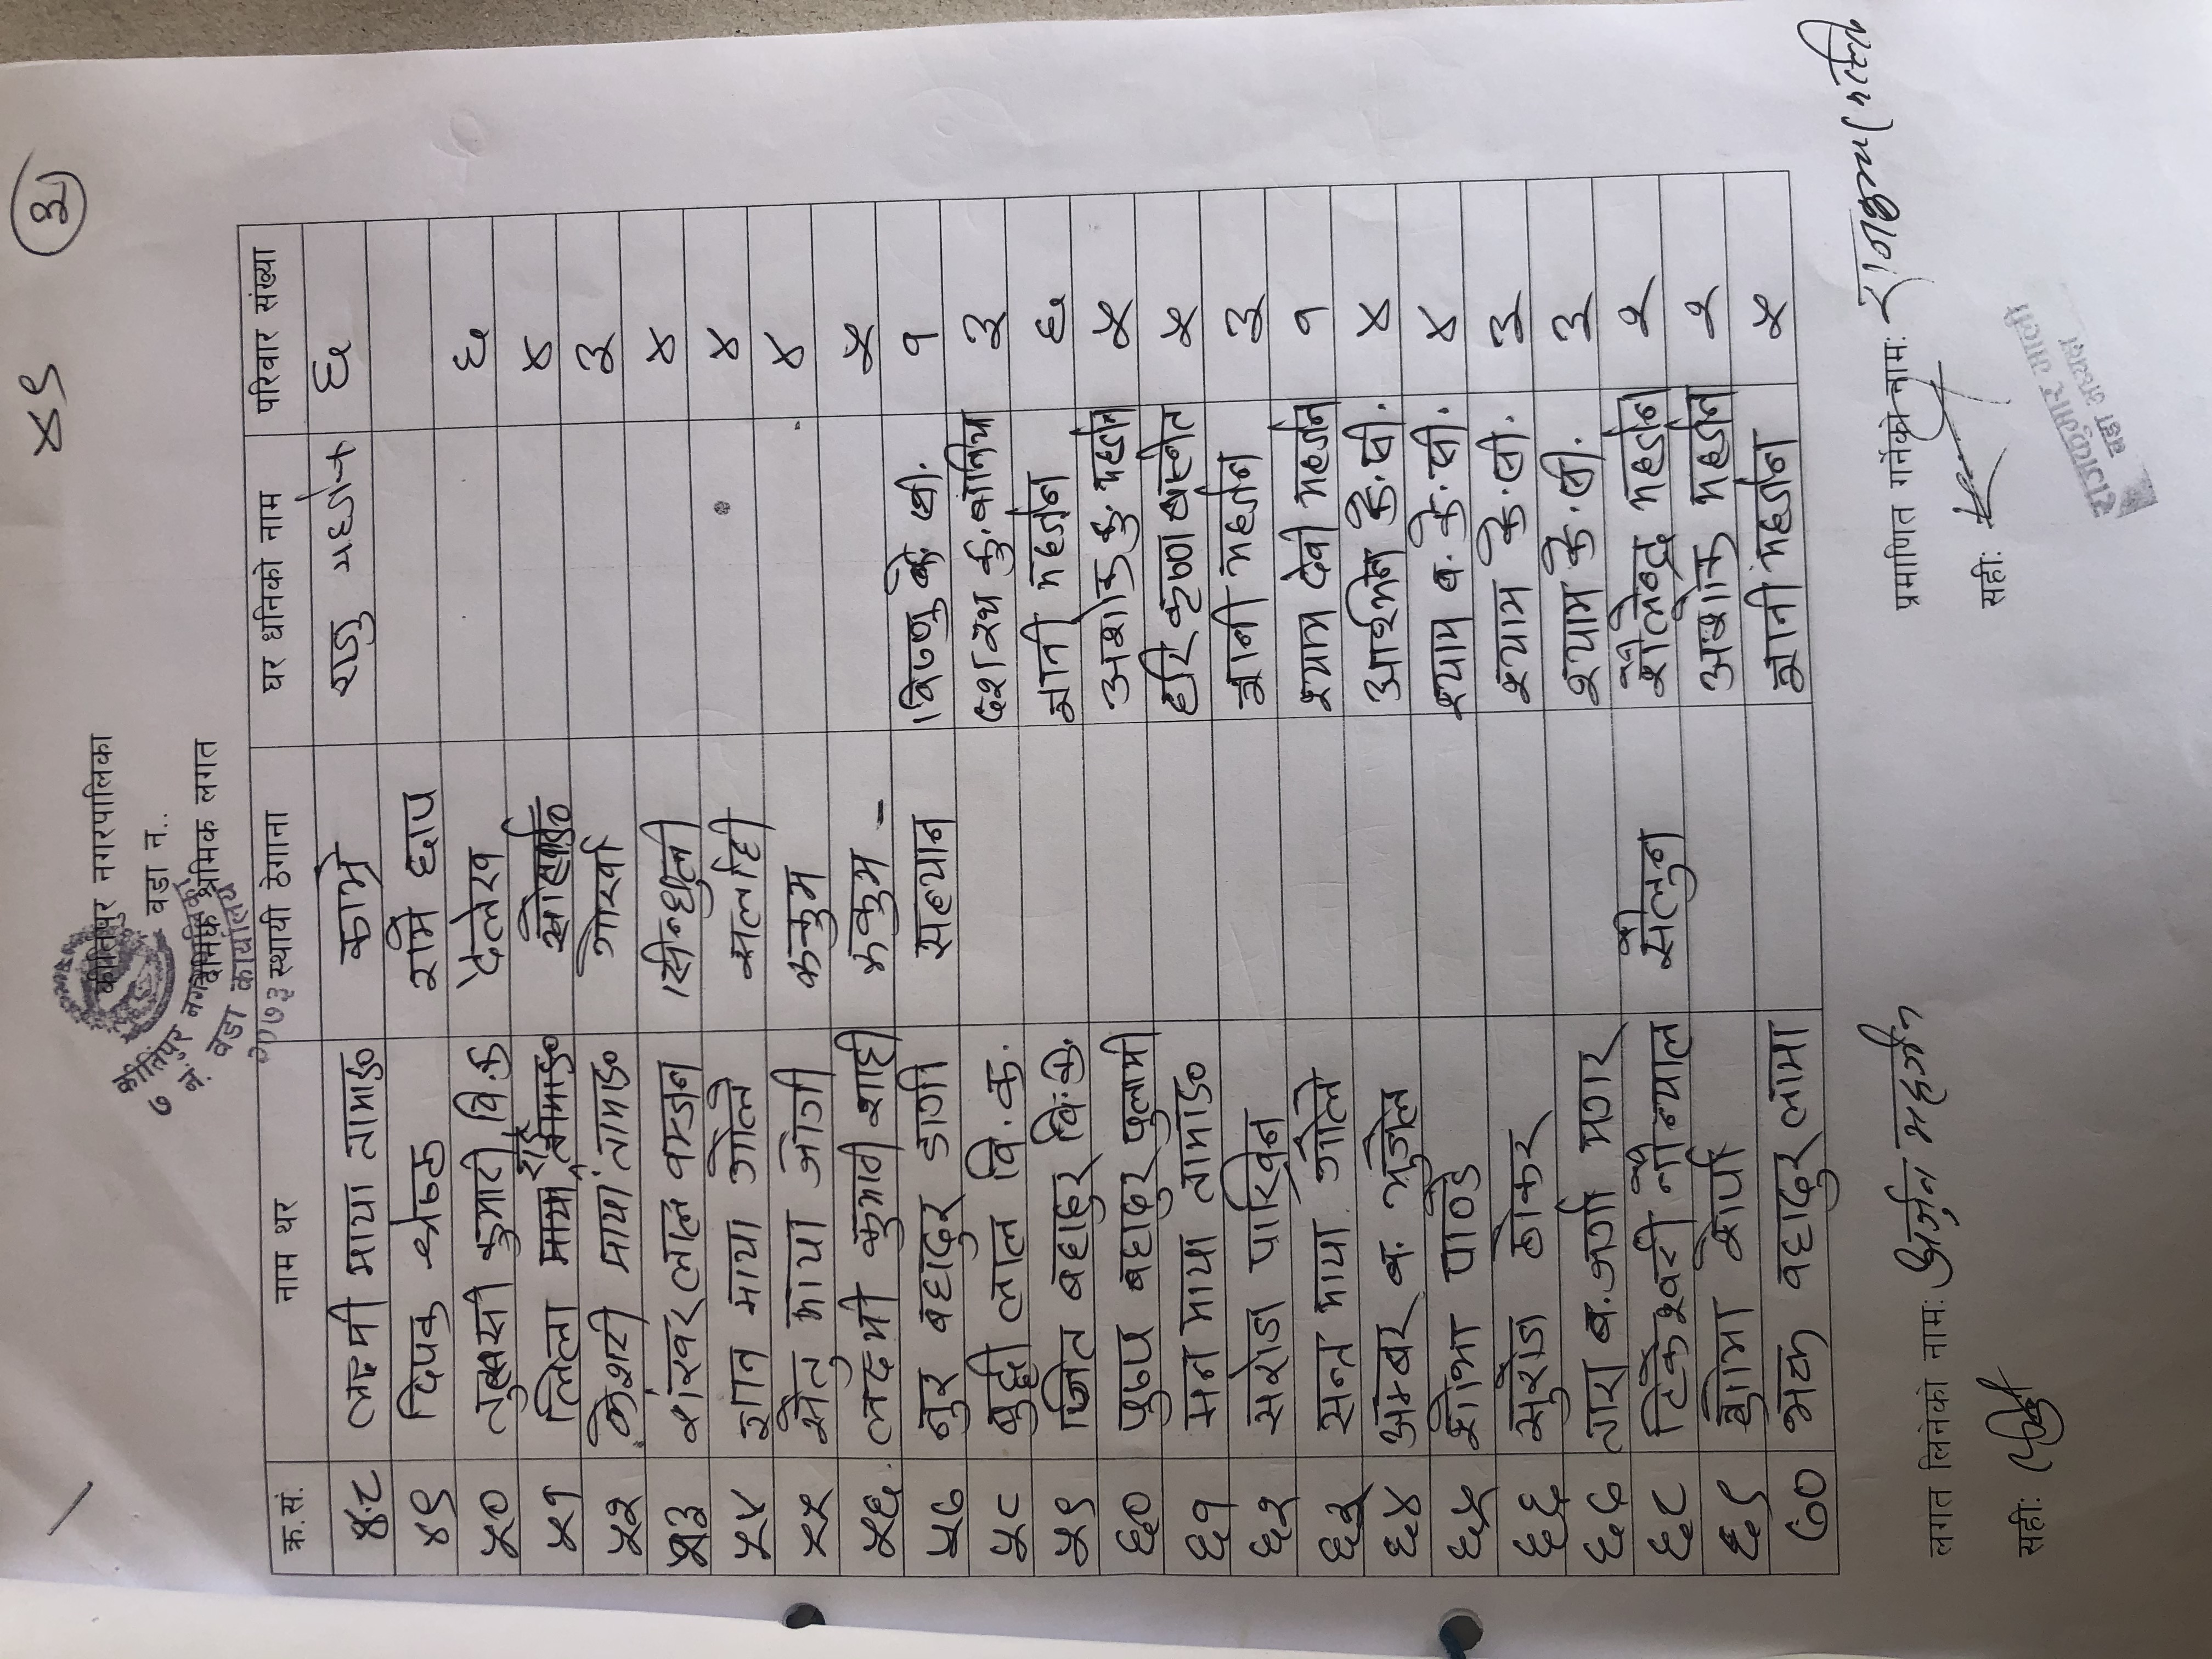 ४९ ३
कीर्तिपुर नगरपालिका
वडा नं..
दैनिक श्रमिक लगत
कीर्तिपुर नगरपालिका
७ नं. वडा कार्यालय
२०७३
क्र.सं. नाम थर स्थायी ठेगाना घर धनिको नाम परिवार संख्या
४८ लक्ष्मी माया तामाङ काभ्रे राजु महर्जन ६
४९ दिपक श्रेष्ठ रामेछाप
५० तुलसी कुमारी वि.क दैलेख ६
५१ लिला माया तामाङ ४
५२ केशरी माया तामाङ गोरखा ३
५३ शंखर लाल वम्जन सिन्धुली ४
५४ ज्ञान माया गोले सर्लाही ४
५५ सेतु माया जोगी रुकुम ४
५६ लक्ष्मी कुमारी शाही रुकुम - ५
५७ नुर बहादुर डागी सल्यान विष्णु के.सी. १
५८ बुद्धी लाल वि.क. दशरथ कु. बानिया ३
५९ जित बहादुर वि.क. ज्ञानी महर्जन ६
६० पुष्प बहादुर पुलामी अशोक कु. महर्जन ५
६१ मन माया तामाङ हरि कृष्ण बस्नेत ५
६२ सरोज पाख्रिन ज्ञानी महर्जन ३
६३ सन्त माया गोले श्याम देवी महर्जन १
६४ अम्बर ब. भुजेल आर्शमन के.सी. ४
६५ शोभा पाण्डे श्याम ब. के.सी. ४
६६ सुरोज ठोकर श्याम के.सी. ३
६७ तारा ब. जर्गा मगर श्याम के.सी. ३
६८ टिकेश्वरी नौन्याल सैलुन शैलेन्द्र महर्जन २
६९ शोभा शेर्पा अशोक महर्जन २
७० भक्त बहादुर लामा ज्ञानी महर्जन ५
लगत लिनेको नामः अर्जुन महर्जन प्रमाणित गर्नेको नामः राजकुमार नाल्ली
सहीः सहीः
राजकुमार नाल्ली
वडा अध्यक्ष